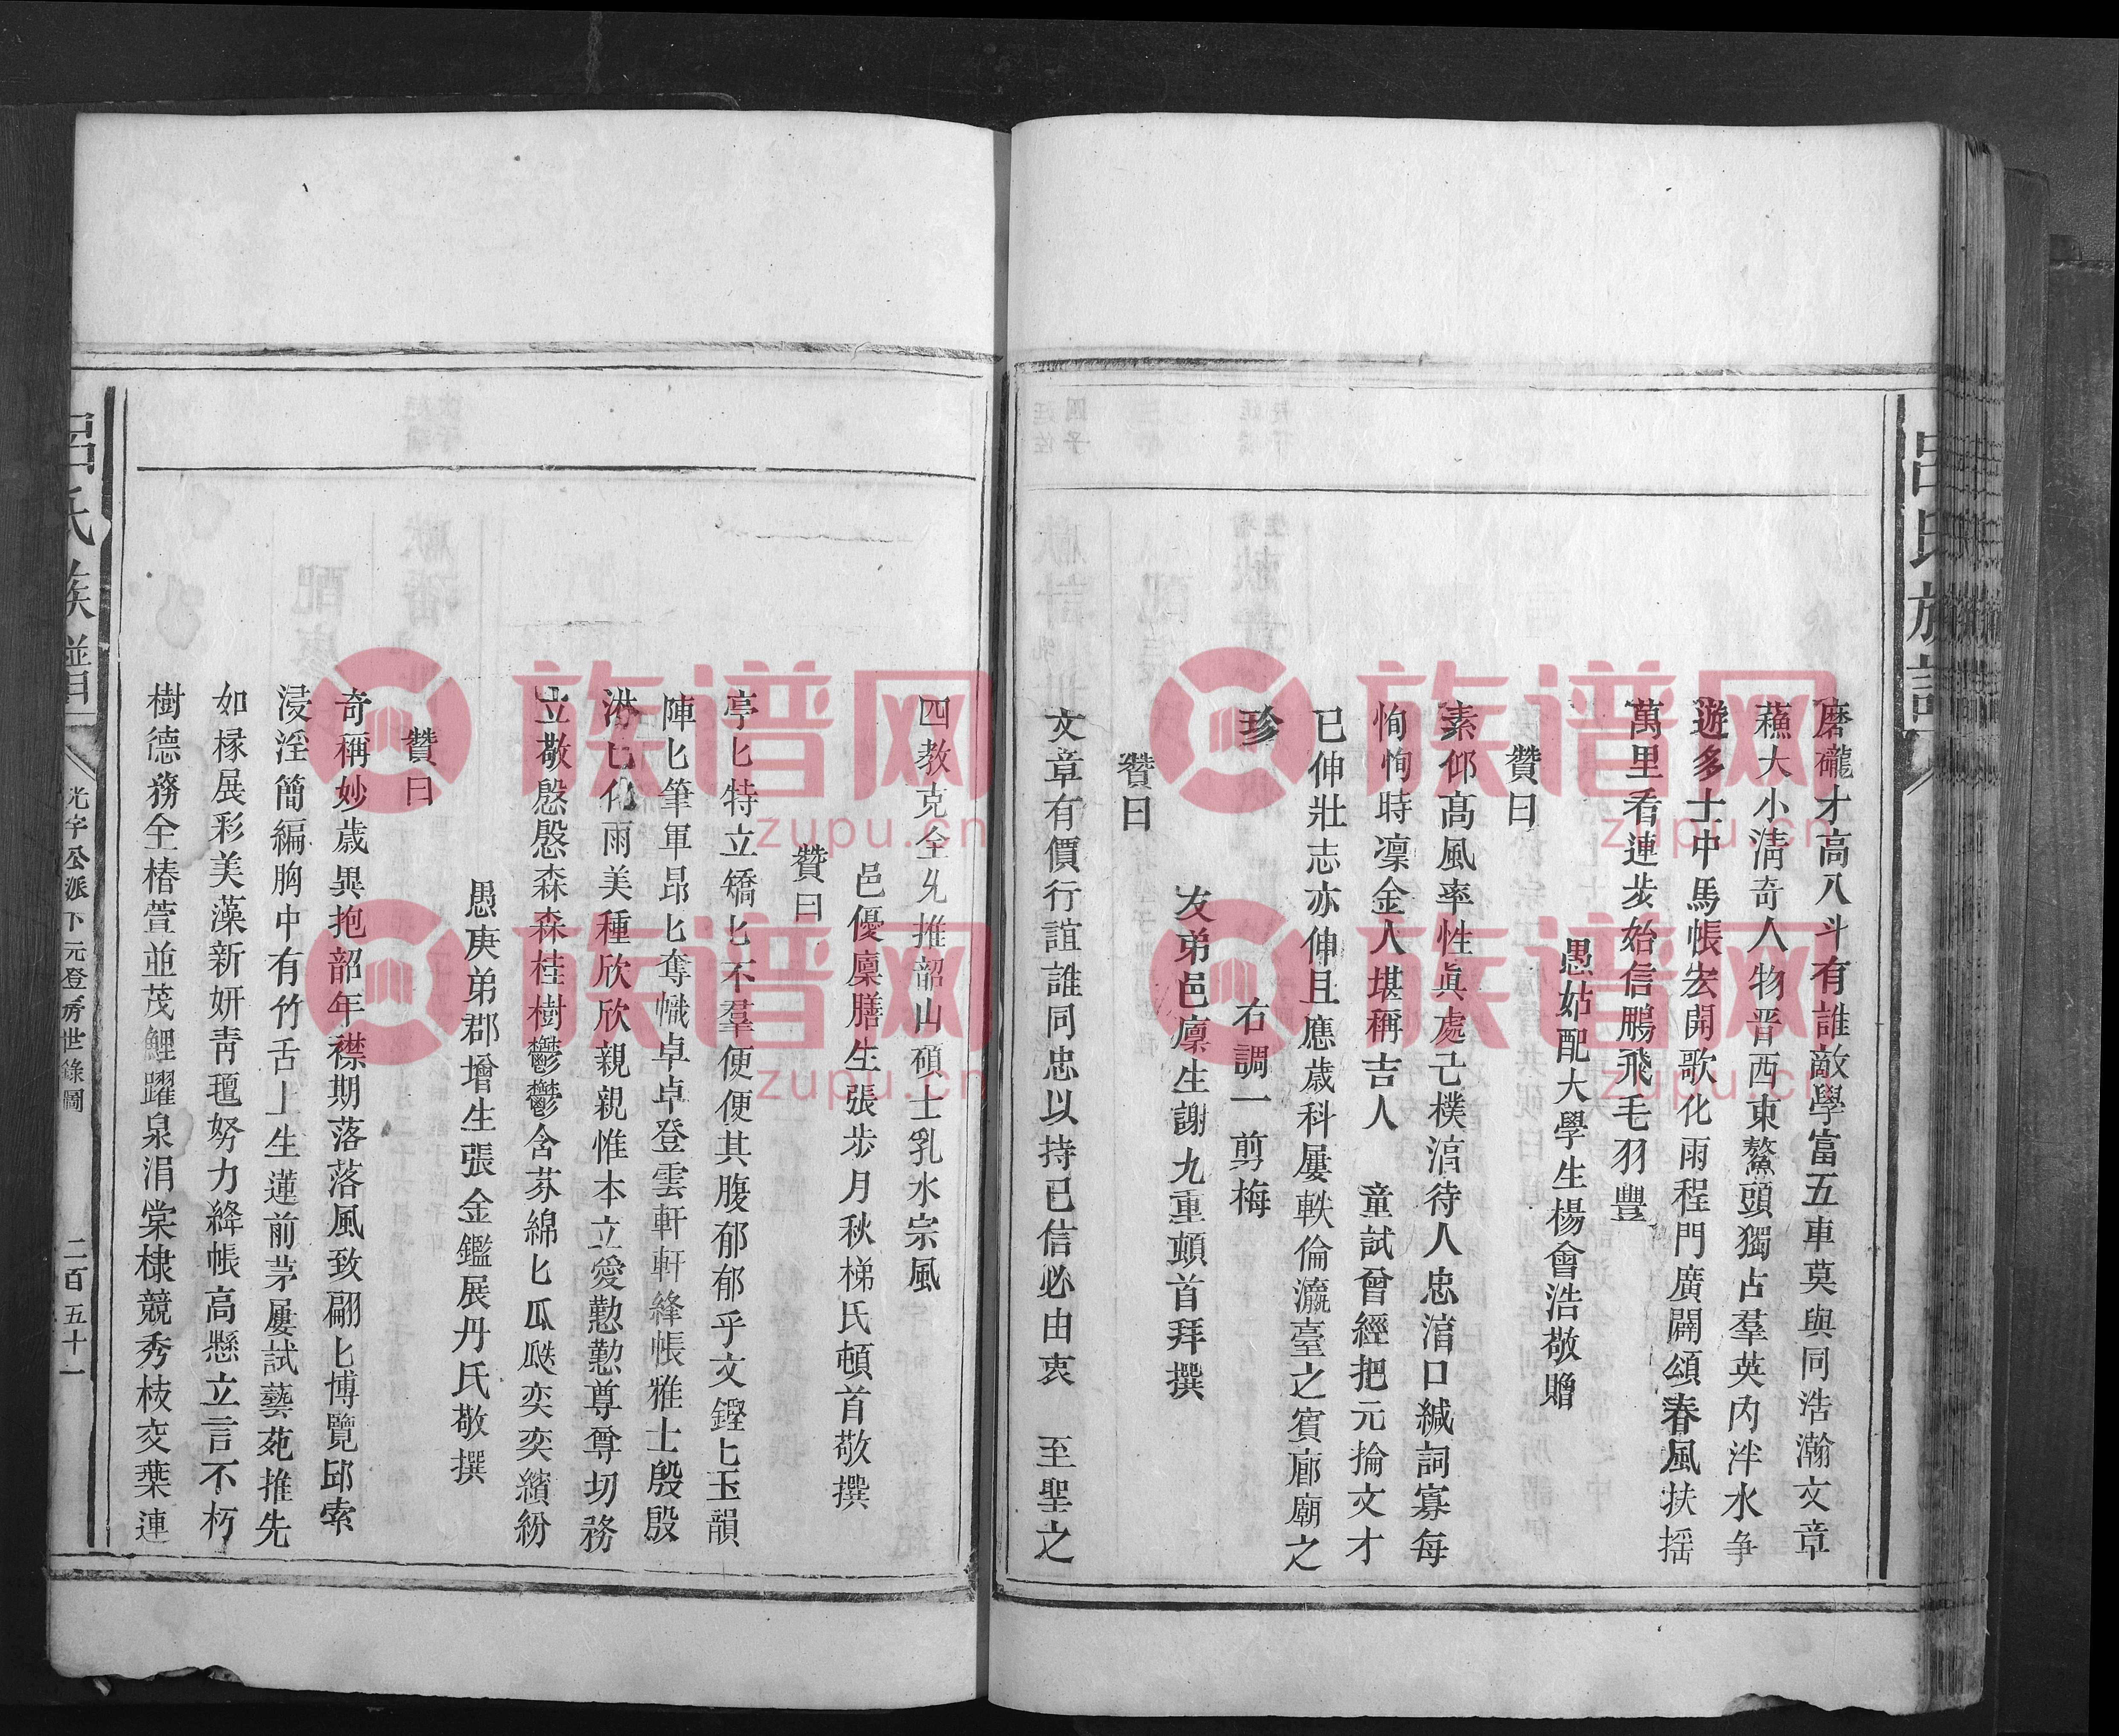 呂氏族譜
磨礲才高八斗有誰敵學富五車莫與同浩瀚文章
蘓大小淸奇人物晋西東鰲頭獨占羣英內泮水争
遊多士中馬帳宏開歌化雨程門廣闢頌春風扶摇
萬里看連步始信鵬飛毛羽豐
愚姑配大學生楊會浩敬贈
贊曰
素仰髙風率性眞處己樸湻待人忠湻口緘詞寡每
恂恂時凛金人堪稱吉人 童試曾經把元掄文才
已伸壯志亦伸且應歲科屢軼倫瀛臺之賓廊廟之
珍 右調一剪梅
友弟邑廩生謝九重頓首拜撰
贊曰
文章有價行誼誰同忠以持已信必由衷 至聖之
四教克全允推韶山碩士乳水宗風
邑優廩膳生張步月秋梯氏頓首敬撰
贊曰
亭匕特立矯匕不羣便便其腹郁郁乎文鏗匕玉韻
陣匕筆軍昂匕奪幟卓卓登雲軒軒絳帳雅士殷殷
濟匕化雨美種欣欣親親惟本立愛懃懃尊尊切務
立敬慇慇森森桂樹鬱鬱含芬綿匕瓜瓞奕奕繽紛
愚庚弟郡增生張金鑑展丹氏敬撰
贊曰
奇稱妙歲異抱韶年襟期落落風致翩匕博覽邱索
浸淫簡編胸中有竹舌上生蓮前茅屢試藝苑推先
如椽展彩美藻新妍靑氊努力絳帳高懸立言不朽
樹德務全椿萱並茂鯉躍泉涓棠棣競秀枝交葉連
呂氏族譜
光字公派下元登房世錄圖
二百五十一
族谱网
zupu.cn
族谱网
zupu.cn
族谱网
zupu.cn
族谱网
zupu.cn